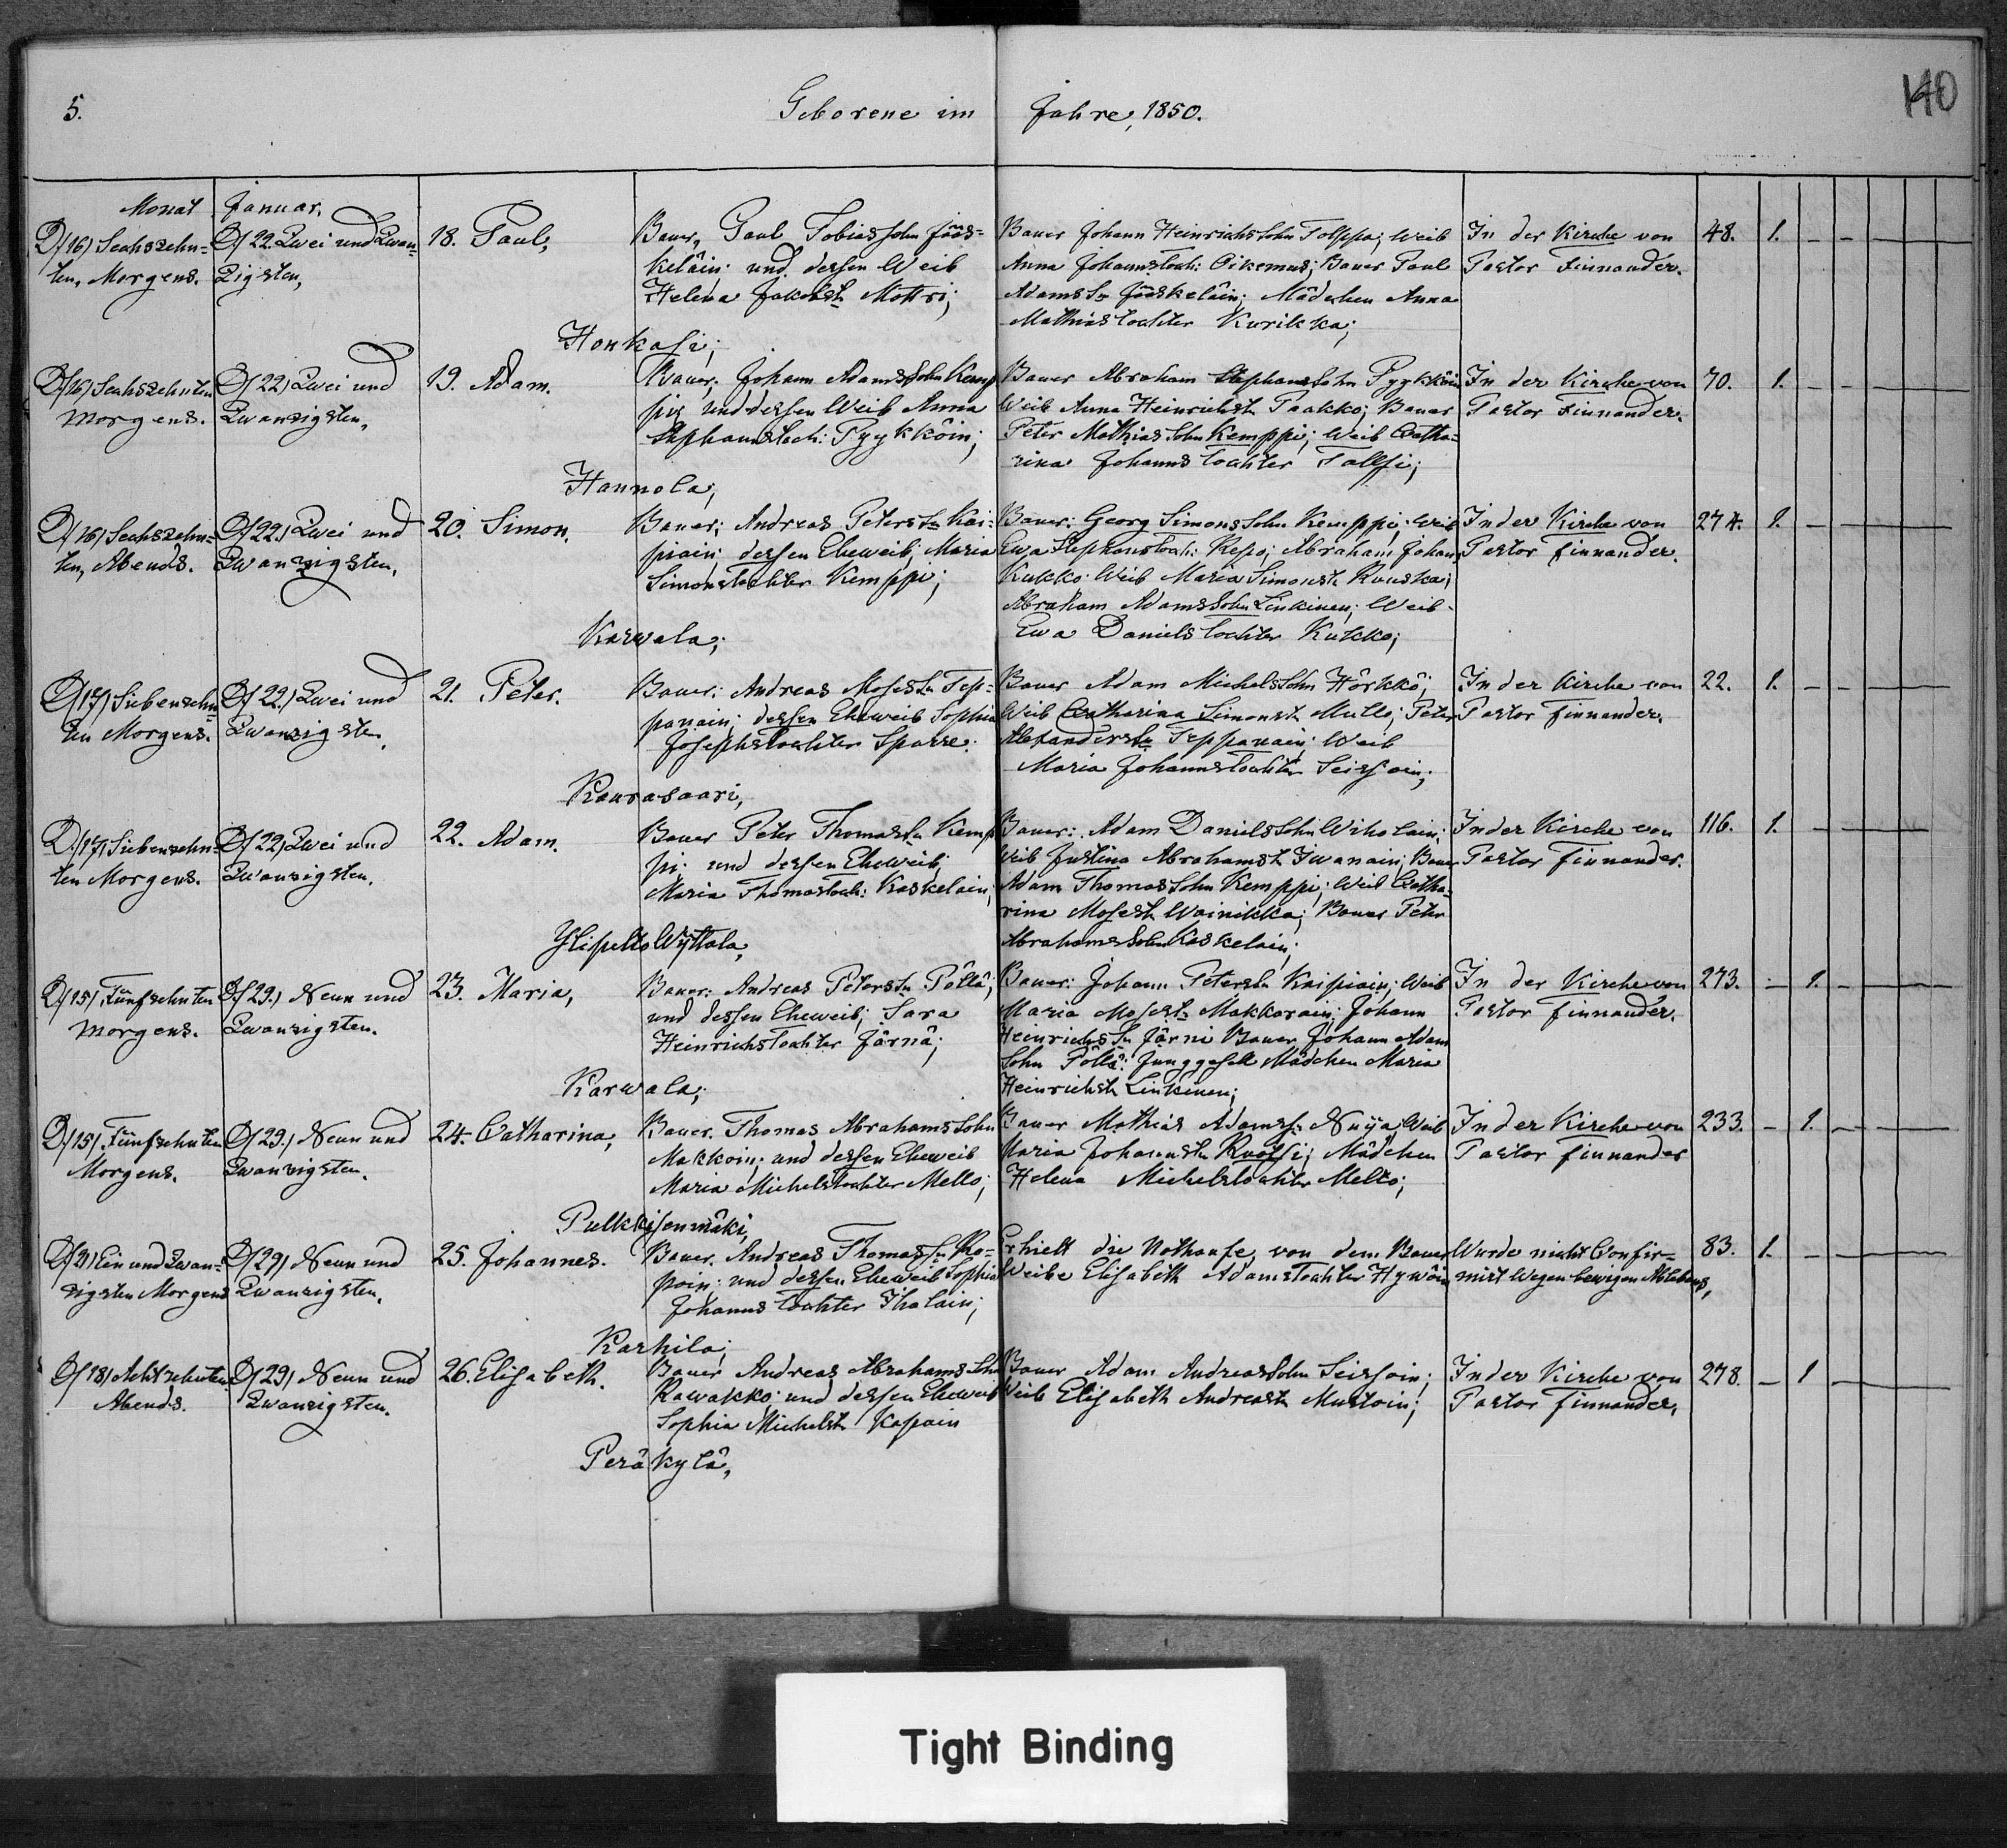 5. Geborene im Jahre, 1850. 140
Monat Januar.
D/16) Sechszehn=
ten, Morgens.
D/22. Zwei und Zwan=
zigsten,
18. Paul,
Bauer, Paul Tobiassohn Jääs=
keläin; und dessen Weib
Helena Jakobst. Mottri;
Honkasi;
Bauer Johann Heinrichssohn Tolppa; Weib
Anna Johannstoch: Oikemus; Bauer Paul
Adamss. Jääskeläin; Mädchen Anna
Mathiastochter Kurikka;
In der Kirche von
Pastor Finnander.
48. 1. – –
D/16) Sechszehnten
Morgens.
D/22) Zwei und
Zwanzigsten,
19. Adam.
Bauer, Johann Adamssohn Kemp
pi; und dessen Weib Anna
Stephanstoch: Pyykköin;
Hannola;
Bauer Abraham Stephanssohn Pyykköin
Weib Anna Heinrichst. Paakko; Bauer
Peter Mathiassohn Kemppi; Weib Catha=
rina Johannstochter Tallsi;
In der Kirche von
Pastor Finnander.
70. 1. – –
D/16) Sechszehn=
ten, Abends.
D/22.) Zwei und
Zwanzigsten,
20. Simon.
Bauer; Andreas Peterss. Kai=
piain; dessen Eheweib; Maria
Simonstochter Kemppi;
Karwala;
Bauer: Georg Simonssohn Kemppi; Weib
Ewa Stephanstoch: Repo; Abraham Johans
Kukko Weib Maria Simonst. Ruuska;
Abraham Adamssohn Linkinen; Weib
Ewa Danielstochter Kukko;
In der Kirche von
Pastor Finnander.
274. 1. – –
D/17) Siebenzehn=
ten Morgens.
D/22.) Zwei und
Zwanzigsten,
21. Peter.
Bauer: Andreas Mosess. Tep=
panain; dessen Eheweib Sophia
Josephstochter Sparre.
Kaurasaari,
Bauer Adam Michelssohn Hörkkö;
Weib Catharina Simonst. Mullo; Peter
Alexanderss. Teppanain; Weib
Maria Johannstochter Seissoin;
In der Kirche von
Pastor Finnander.
22. 1. – –
D/17) Siebenzehn=
ten Morgens.
D/22) Zwei und
Zwanzigsten.
22. Adam.
Bauer Peter Thomass. Kemp
pi; und dessen Eheweib;
Maria Thomastoch: Kaskelain;
Ylipelto Wyttala,
Bauer: Adam Danielssohn Wiholain;
Weib Justina Abrahamst. Iwanain; Bauer
Adam Thomassohn Kemppi; Weib Catha=
rina Mosest. Wainikka; Bauer Peter
Abrahamssohn Kaskelain;
In der Kirche von
Pastor Finnander.
116. 1. –
D/15) Fünfzehnten
Morgens.
D/29.) Neun und
Zwanzigsten.
23. Maria,
Bauer: Andreas Peterss. Pöllä;
und dessen Eheweib; Sara
Heinrichstochter Järnä;
Karwala;
Bauer: Johann Peterss. Kaipiain; Weib
Maria Mosest. Makkarain; Johann
Heinrichss. Järni Bauer Johann Adam
Sohn Pöllä: Junggesell Mädchen Maria
Heinrichst. Linkinen;
In der Kirche von
Pastor Finnander.
273. – 1. –
D/15) Fünfzehnten
Morgens.
D/29.) Neun und
Zwanzigsten.
24. Catharina,
Bauer. Thomas Abrahamssohn
Makkoin; und dessen Eheweib
Maria Michelstochter Mello;
Pulkkisenmäki,
Bauer Mathias Adamss. Nuija Weib
Maria Johannst. Ruotsi; Mädchen
Helena Michelstochter Melto;
In der Kirche von
Pastor Finnander
233. – 1. –
D/21) Ein und Zwan=
zigsten Morgens
D/29) Neun und
Zwanzigsten.
25. Johannes.
Bauer. Andreas Thomass. Ro=
poin; und dessen Eheweib Sophia
Johannstochter Ihalain;
Karhila;
Erhielt die Nothaufe von dem Bauer
Weibe Elisabeth Adamstochter Hywöin
Wurde nicht Confir=
mirt Wegen bewigen Ablebens,
83. 1. – –
D/18) Achtzehnten
Abends.
D/29) Neun und
Zwanzigsten.
26. Elisabeth.
Bauer Andreas Abrahamssohn
Rawakko; und dessen Eheweib
Sophia Michelst. Kapain
Peräkylä,
Bauer Adam Andreassohn Seissoin;
Weib Elisabeth Andreast. Mustoin;
In der Kirche von
Pastor Finnander,
278. – 1 –
Tight Binding